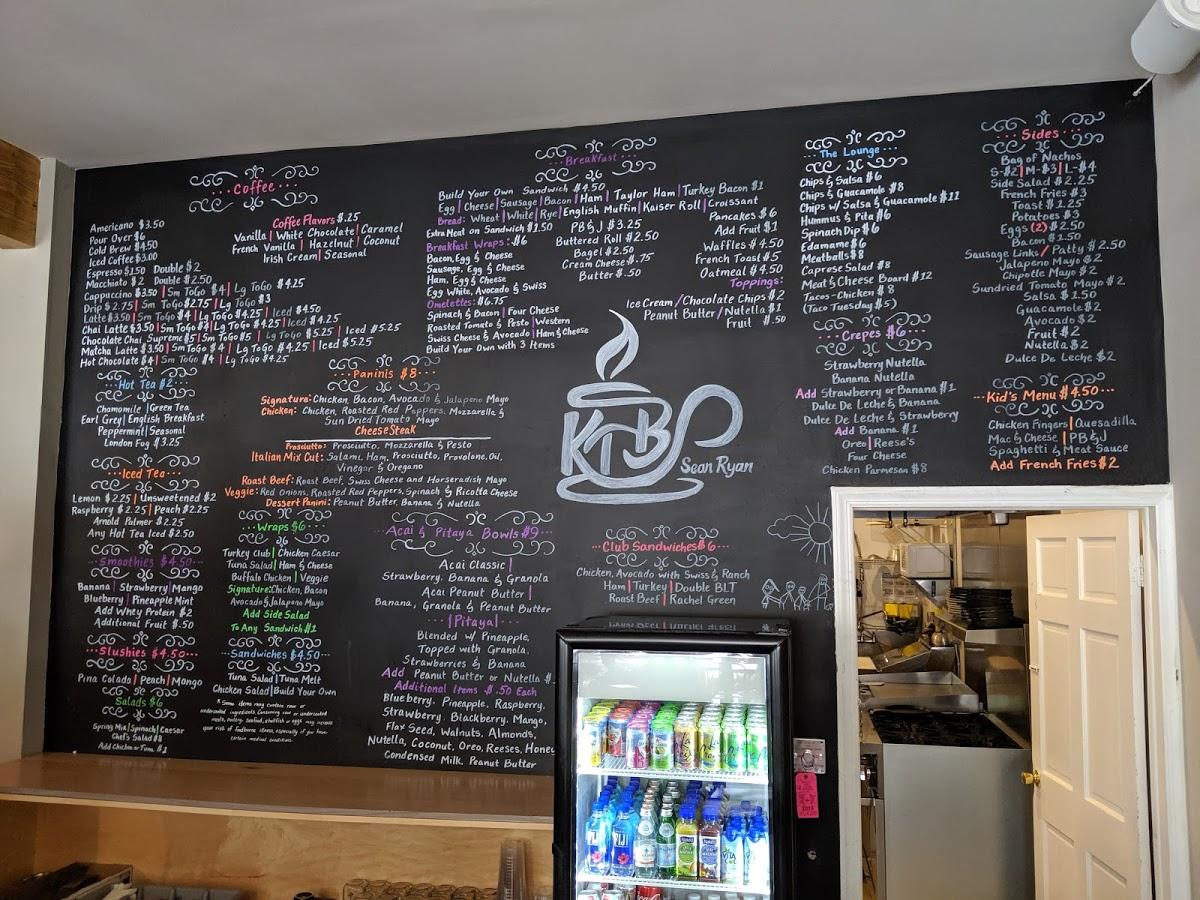 Coffee
Americano $3.50
Pour Over $6
Cold Brew $4.50
Iced Coffee $3.00
Espresso $1.50 Double $2
Macchiato $2 Double $2.50
Cappuccino $3.50 | Sm ToGo $4 | Lg ToGo $4.25
Drip $2.75 | Sm ToGo $2.75 | Lg ToGo $3
Latte $3.50 | Sm ToGo $4 | Lg ToGo $4.25 | Iced $4.50
Chai Latte $3.50 | Sm ToGo $4 | Lg ToGo $4.25 | Iced $4.25
Chocolate Chai Supreme $5 | Sm ToGo $5 | Lg ToGo $5.25 | Iced $5.25
Matcha Latte $3.50 | Sm ToGo $4 | Lg ToGo $4.25 | Iced $5.25
Hot Chocolate $4 | Sm ToGo $4 | Lg ToGo $4.25
Coffee Flavors $.25
Vanilla | White Chocolate | Caramel
French Vanilla | Hazelnut | Coconut
Irish Cream | Seasonal
Hot Tea $2
Chamomile | Green Tea
Earl Grey | English Breakfast
Peppermint | Seasonal
London Fog $3.25
Iced Tea
Lemon $2.25 | Unsweetened $2
Raspberry $2.25 | Peach $2.25
Arnold Palmer $2.25
Any Hot Tea Iced $2.50
Smoothies $4.50
Banana | Strawberry | Mango
Blueberry | Pineapple Mint
Add Whey Protein $2
Additional Fruit $.50
Slushies $4.50
Pina Colada | Peach | Mango
Salads $6
Spring Mix | Spinach | Caesar
Chef's Salad $8
Add Chicken or Tuna $1
Paninis $8
Signature: Chicken, Bacon, Avocado & Jalapeno Mayo
Chicken: Chicken, Roasted Red Peppers, Mozzarella &
Sun Dried Tomato Mayo
Cheese Steak
Prosciutto: Prosciutto, Mozzarella & Pesto
Italian Mix Cut: Salami, Ham, Prosciutto, Provolone, Oil,
Vinegar & Oregano
Roast Beef: Roast Beef, Swiss Cheese and Horseradish Mayo
Veggie: Red Onions, Roasted Red Peppers, Spinach & Ricotta Cheese
Dessert Panini: Peanut Butter, Banana & Nutella
Wraps $6
Turkey Club | Chicken Caesar
Tuna Salad | Ham & Cheese
Buffalo Chicken | Veggie
Signature: Chicken, Bacon
Avocado & Jalapeno Mayo
Add Side Salad
To Any Sandwich $1
Sandwiches $4.50
Tuna Salad | Tuna Melt
Chicken Salad | Build Your Own
* Some items may contain raw or
undercooked ingredients. Consuming raw or undercooked
meats, poultry, seafood, shellfish or eggs may increase
your risk of foodborne illness, especially if you have
certain medical conditions
Acai & Pitaya Bowls $9
Acai Classic |
Strawberry, Banana & Granola
Acai Peanut Butter |
Banana, Granola & Peanut Butter
| Pitaya |
Blended w/ Pineapple,
Topped with Granola,
Strawberries & Banana
Add Peanut Butter or Nutella $
Additional Items $.50 Each
Blueberry, Pineapple, Raspberry,
Strawberry, Blackberry, Mango,
Flax Seed, Walnuts, Almonds,
Nutella, Coconut, Oreo, Reeses, Honey
Condensed Milk, Peanut Butter
Breakfast
Build Your Own Sandwich $4.50
Egg | Cheese | Sausage | Bacon | Ham | Taylor Ham | Turkey Bacon $1
Bread: Wheat | White | Rye | English Muffin | Kaiser Roll | Croissant
Extra Meat on Sandwich $1.50
Breakfast Wraps: $6
Bacon, Egg & Cheese
Sausage, Egg & Cheese
Ham, Egg & Cheese
Egg White, Avocado & Swiss
Omelettes: $6.75
Spinach & Bacon | Four Cheese
Roasted Tomato & Pesto | Western
Swiss Cheese & Avocado | Ham & Cheese
Build Your Own with 3 Items
PB & J $3.25
Buttered Roll $2.50
Bagel $2.50
Cream Cheese $.75
Butter $.50
Pancakes $6
Add Fruit $1
Waffles $4.50
French Toast $5
Oatmeal $4.50
Toppings:
Ice Cream/Chocolate Chips $2
Peanut Butter/Nutella $1
Fruit $.50
KTB
Sean Ryan
Club Sandwiches $6
Chicken, Avocado with Swiss & Ranch
Ham | Turkey | Double BLT
Roast Beef | Rachel Green
The Lounge
Chips & Salsa $6
Chips & Guacamole $8
Chips w/ Salsa & Guacamole $11
Hummus & Pita $6
Spinach Dip $6
Edamame $6
Meatballs $8
Caprese Salad $8
Meat & Cheese Board $12
Tacos - Chicken $8
(Taco Tuesday $5)
Crepes $6
Strawberry Nutella
Banana Nutella
Add Strawberry or Banana $1
Dulce De Leche & Banana
Dulce De Leche & Strawberry
Add Banana $1
Oreo | Reese's
Four Cheese
Chicken Parmesan $8
Sides
Bag of Nachos
S-$2 | M-$3 | L-$4
Side Salad $2.25
French Fries $3
Toast $1.25
Potatoes $3
Eggs (2) $2.50
Bacon $1.50
Sausage Links / Patty $2.50
Jalapeno Mayo $2
Chipotle Mayo $2
Sundried Tomato Mayo $2
Salsa $1.50
Guacamole $2
Avocado $2
Fruit $2
Nutella $2
Dulce De Leche $2
Kid's Menu $4.50
Chicken Fingers | Quesadilla
Mac & Cheese | PB & J
Spaghetti & Meat Sauce
Add French Fries $2
FIJI